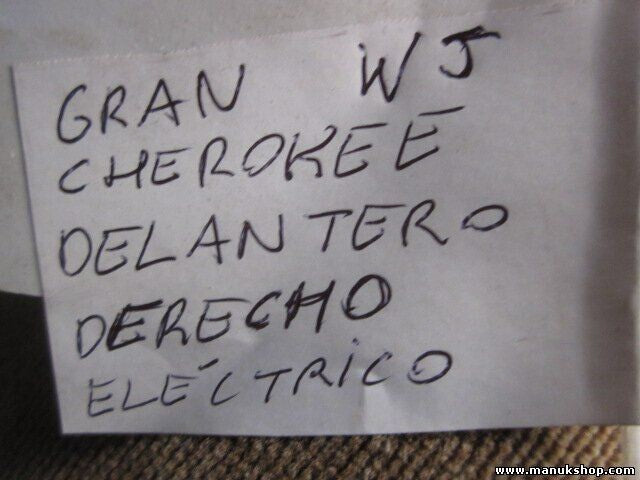 GRAN WJ
CHEROKEE
DELANTERO
DERECHO
ELÉCTRICO
www.manukshop.com